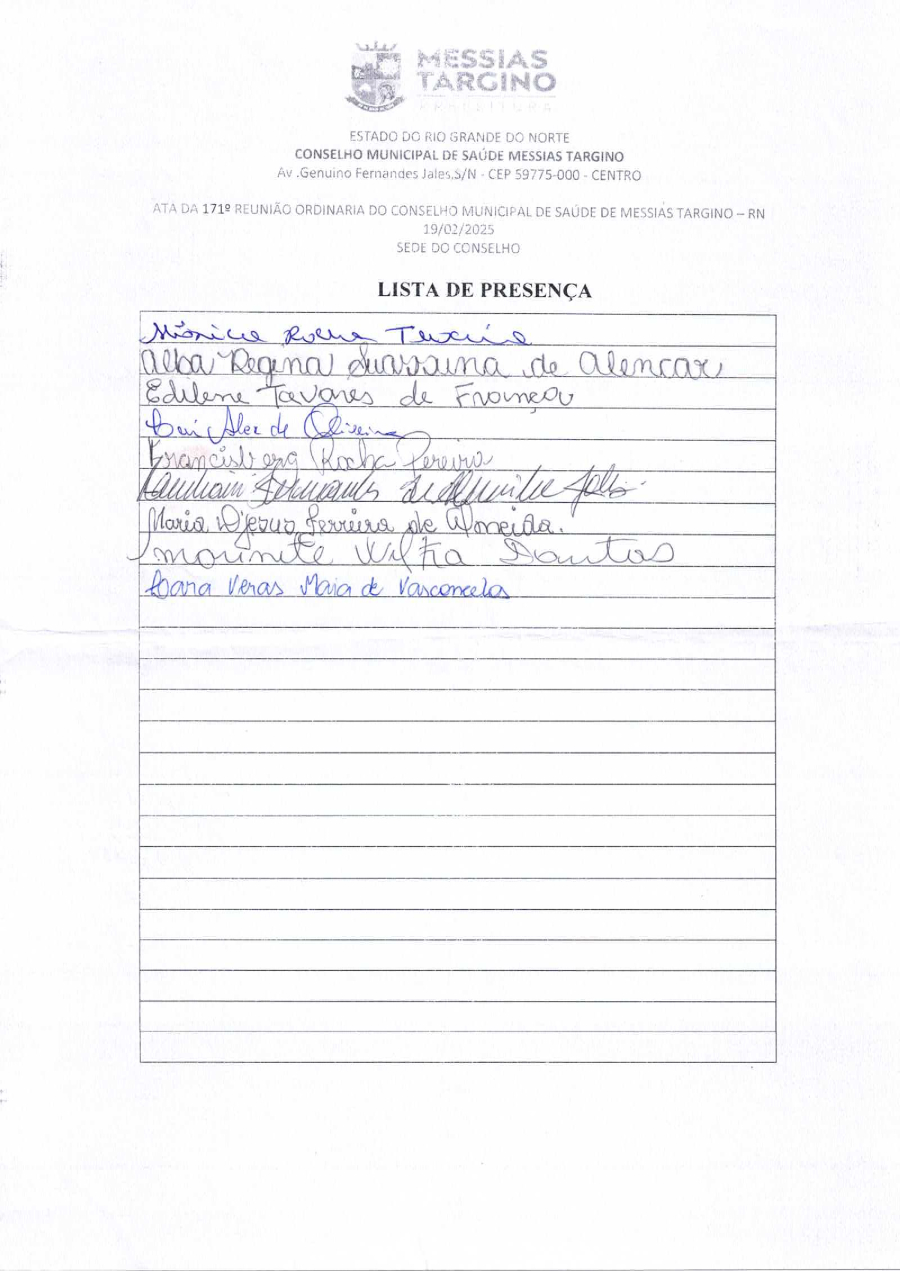 MESSIAS
TARGINO
PREFEITURA
ESTADO DO RIO GRANDE DO NORTE
CONSELHO MUNICIPAL DE SAÚDE MESSIAS TARGINO
Av .Genuino Fernandes Jales,S/N - CEP 59775-000 - CENTRO
ATA DA 171º REUNIÃO ORDINARIA DO CONSELHO MUNICIPAL DE SAÚDE DE MESSIAS TARGINO – RN
19/02/2025
SEDE DO CONSELHO
LISTA DE PRESENÇA
Mônica Rocha Teixeira
Alba Regina Suassuna de Alencar
Edilene Tavares de França
Alex de Oliveira
Francisberg Rocha Pereira
Fernandes
Maria D'jesus Ferreira de Almeida.
Dantas
Veras Maia de Vasconcelos